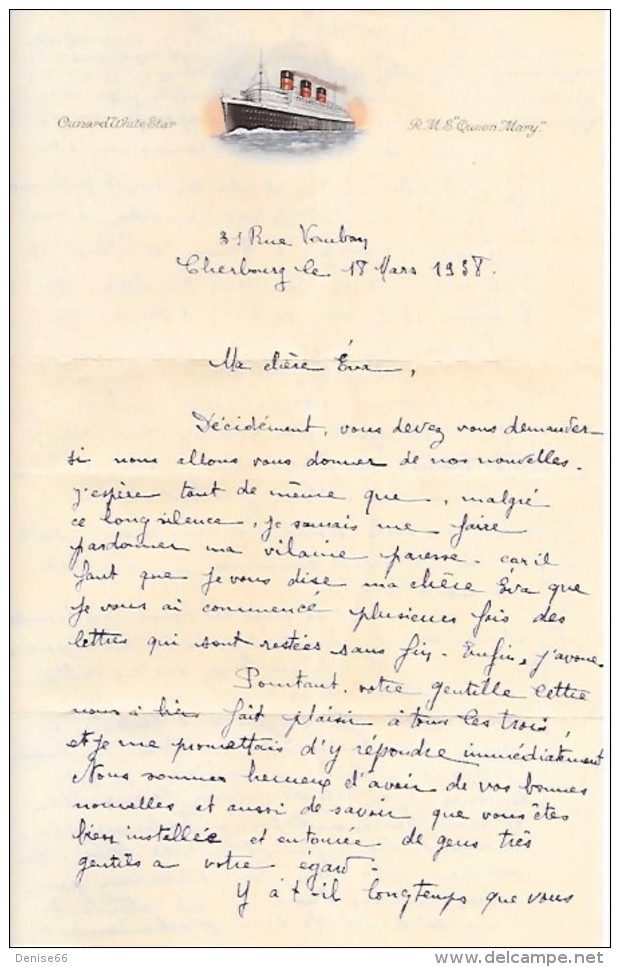 Cunard White Star
R.M.S "Queen Mary"
31 Rue Vauban
Cherbourg le 18 Mars 1938.
Ma chère Éva,
Décidément, vous devez vous demander
si nous allons vous donner de nos nouvelles.
J'espère tout de même que, malgré
ce long silence, je saurais me faire
pardonner ma vilaine paresse. car il
faut que je vous dise ma chère Eva que
je vous ai commencé plusieurs fois des
lettres qui sont restées sans fin. Enfin, j'avoue.
Pourtant, votre gentille lettre
nous a bien fait plaisir à tous les trois,
et je me promettais d'y répondre immédiatement
Nous sommes heureux d'avoir de vos bonnes
nouvelles et aussi de savoir que vous êtes
bien installée et entourée de gens très
gentils a votre egard.
Y à t-il longtemps que vous
Denise66